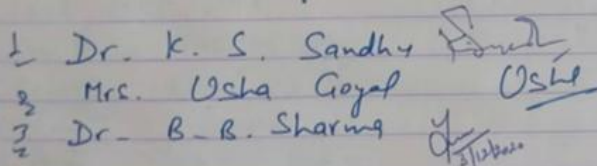 1 Dr. K. S. Sandhu
2 Mrs. Usha Goyal Usha
3 Dr- B-B. Sharma